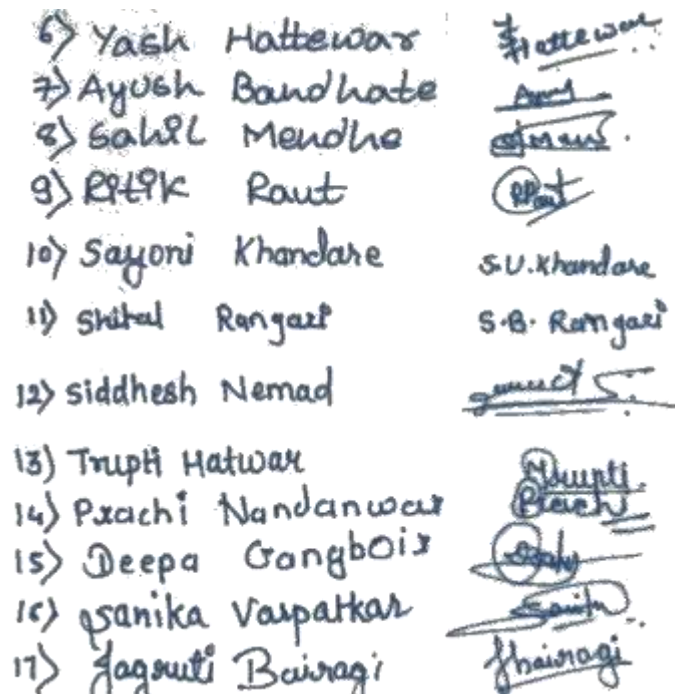 6) Yash Hattewar Hattewar
7) Ayush Bandhate
8) Sahil Mendhe
9) Ritik Raut RRaut
10) Sayoni Khandare S.U.Khandare
11) Shital Rangari S.B. Ramgari
12) Siddhesh Nemad
13) Trupti Hatwar Trupti.
14) Prachi Nandanwar Prachi
15) Deepa Gangboir
16) Sanika Vaspatkar
17) Jagruti Bairagi Jbairagi